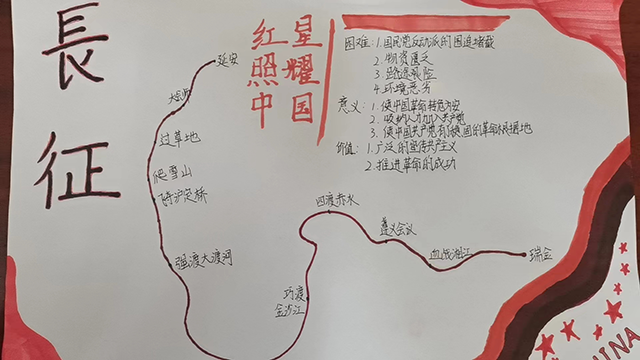 長征
红星
照耀
中国
困难:1.国民党反动派的围追堵截
2.物资匮乏
3.路途艰险
4.环境恶劣
意义:1.使中国革命转危为安
3.使中国共产党有了稳固的革命根据地
价值:1.广泛的宣传共产主义
2.推进革命的成功
延安
大会师
过草地
爬雪山
飞夺泸定桥
强渡大渡河
巧渡
金沙江
四渡赤水
遵义会议
血战湘江
瑞金
CHINA